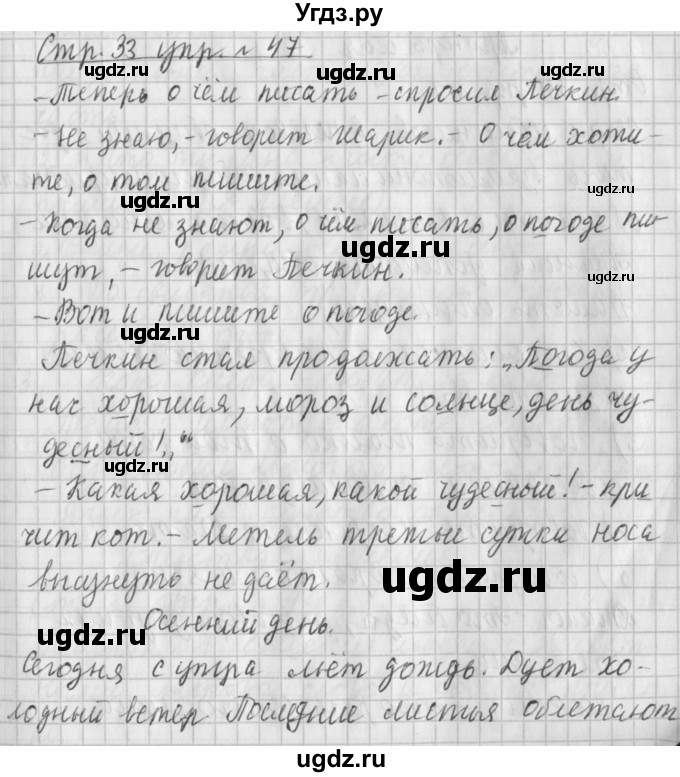 Угдз.ру
Стр. 33 упр. № 47
- Теперь о чём писать - спросил Печкин.
- Не знаю, - говорит Шарик. - О чём хоти-
те, о том пишите.
- Когда не знают, о чём писать, о погоде пи-
шут, - говорит Печкин.
- Вот и пишите о погоде.
Печкин стал продолжать: „Погода у
нас хорошая, мороз и солнце, день чу-
десный!„“
- Какая хорошая, какой чудесный! - кри
чит кот. - Метель третьи сутки носа
высунуть не даёт.
Осенний день.
Сегодня с утра льёт дождь. Дует хо-
лодный ветер Последние листья облетают
ugdz.ru
ugdz.ru
ugdz.ru
ugdz.ru
ugdz.ru
ugdz.ru
ugdz.ru
ugdz.ru
ugdz.ru
ugdz.ru
ugdz.ru
ugdz.ru
ugdz.ru
ugdz.ru